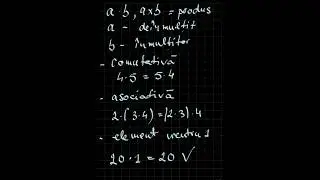 a · b, a x b = produs
a - deînmulțit
b - înmulțitor
- comutativă
4 · 5 = 5 · 4
- asociativă
2 · (3 · 4) = (2 · 3) · 4
- element neutru 1
20 · 1 = 20 ✓